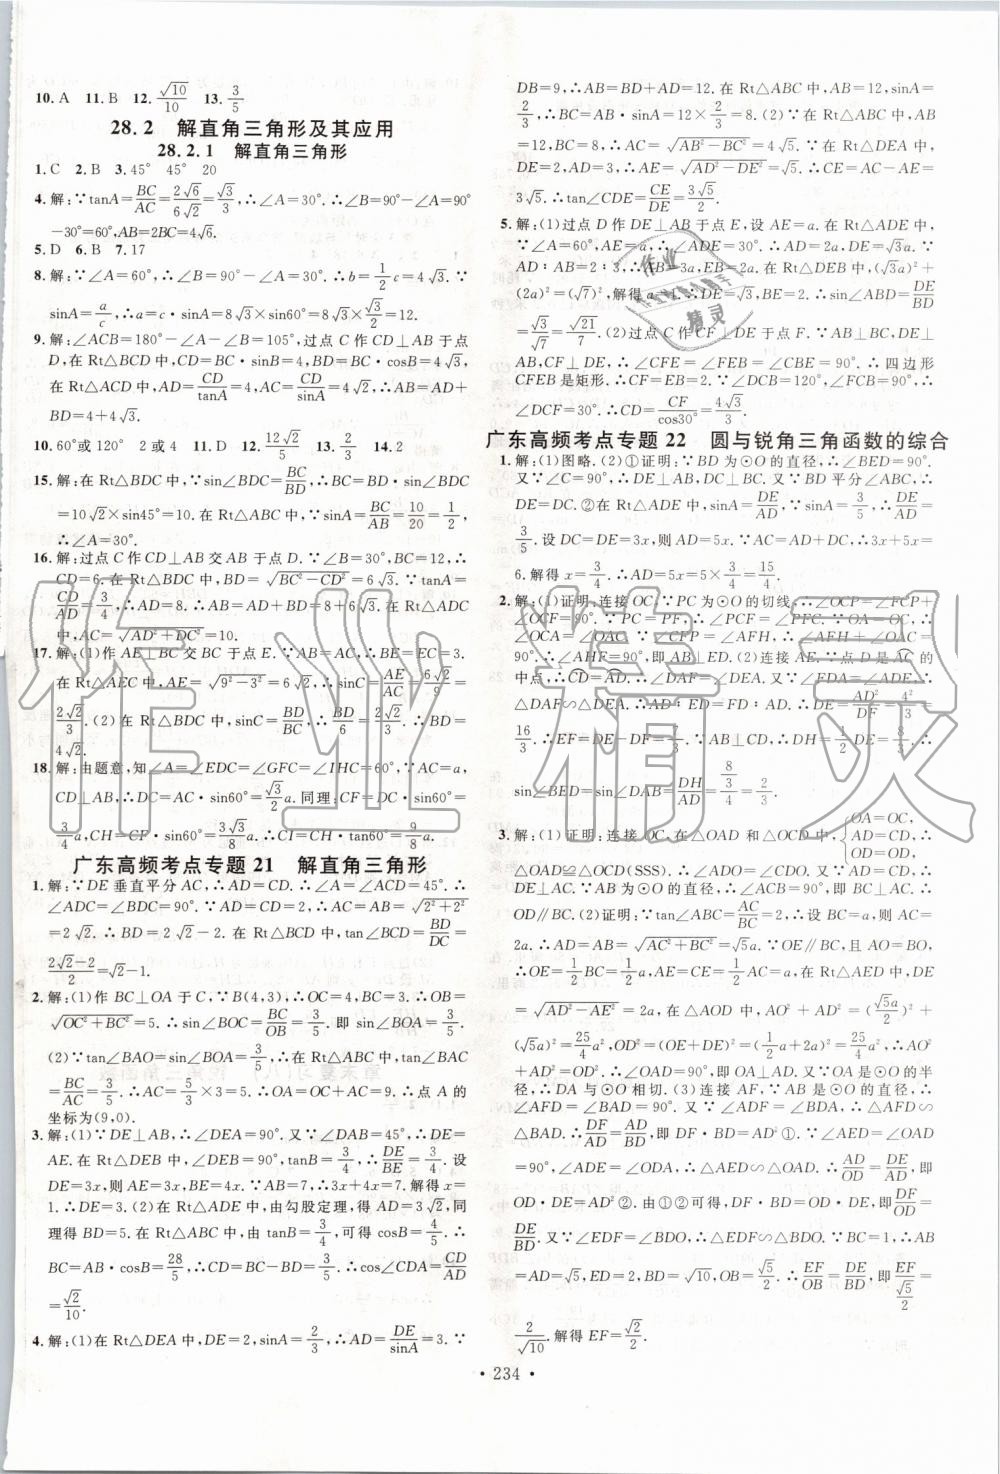 10. A 11. B 12. √10/10 13. 3/5
28.2 解直角三角形及其应用
28.2.1 解直角三角形
1. C 2. B 3. 45° 45° 20
4. 解:∵tanA=BC/AC=2√6/6√2=√3/3,∴∠A=30°.∴∠B=90°-∠A=90°
-30°=60°,AB=2BC=4√6.
5. D 6. B 7. 17
8. 解:∵∠A=60°,∴∠B=90°-∠A=30°.∴b=1/2c=4√3.∵
sinA=a/c,∴a=c·sin60°=8√3×sin60°=8√3×√3/2=12.
9. 解:∠ACB=180°-∠A-∠B=105°.过点C作CF⊥AB于点
D,在Rt△BCD中,CD=BC·sinB=4√3,BD=BC·cosB=4√3,
在Rt△ACD中,AD=CD/tanA=4,AC=CD/sinA=4√2,∴AB=AD+
BD=4+4√3.
10. 60°或120° 2或4 11. D 12. 12√2/5 13. 2/3 14. 2
15. 解:在Rt△BDC中,∵sin∠BDC=BC/BD,∴BC=BD·sin∠BDC
=10√2×sin45°=10.在Rt△ABC中,∵sinA=BC/AB=10/20=1/2,
∴∠A=30°.
16. 解:过点C作CD⊥AB交AB于点D.∵∠B=30°,BC=12,∴
CD=6.在Rt△BDC中,BD=√BC²-CD²=6√3.∵tanA=
CD/AD=3/4,∴AD=8.∴AB=AD+BD=8+6√3.在Rt△ADC
中,AC=√AD²+DC²=10.
17. 解:(1)作AE⊥BC交BC于点E.∵AB=AC,∴BE=EC=3.
在Rt△AEC中,AE=√9²-3²=6√2,∴sinC=AE/AC=6√2/9=
2√2/3.(2)在Rt△BDC中,sinC=BD/BC,∴BD/6=2√2/3.∴BD=
4√2.
18. 解:由题意,知∠A=∠EDC=∠GFC=∠IHC=60°,∵AC=a,
CD⊥AB,∴DC=AC·sin60°=√3/2a.同理:CF=DC·sin60°=
3/4a,CH=CF·sin60°=3√3/8a.∴CI=CH·sin60°=9/16a.
广东高频考点专题21 解直角三角形
1. 解:∵DE垂直平分AC,∴AD=CD.∴∠A=∠ACD=45°.∴
∠ADC=∠BDC=90°.∵AD=CD=2,∴AC=AB=√2²+2²
=2√2.∴BD=2√2-2.在Rt△BCD中,tan∠BCD=BD/DC=
2√2-2/2=√2-1.
2. 解:(1)作BC⊥OA于C,∵B(4,3),∴OC=4,BC=3.∴OB=
√OC²+BC²=5.∴sin∠BOC=BC/OB=3/5.即sin∠BOA=3/5.
(2)∵tan∠BAO=sin∠BOA=3/5,∴在Rt△ABC中,tan∠BAC=
BC/AC=3/5.∴AC=5/3×3=5.∴OA=OC+AC=9.∴点A的
坐标为(9,0).
3. 解:(1)∵DE⊥AB,∴∠DEA=90°.又∵∠DAB=45°,∴DE=
AE.在Rt△DEB中,∠DEB=90°,tanB=3/4,∴DE/BE=3/4.设
DE=3x,则AE=3x,BE=4x.∵AB=7,∴3x+4x=7.解得x=
1.∴DE=3.(2)在Rt△ADE中,由勾股定理,得AD=3√2,同
理得BD=5.在Rt△ABC中,由tanB=3/4,可得cosB=4/5.∴
BC=AB·cosB=28/5,∴CD=BC-BD=3/5.∴cos∠CDA=CD/AD
=√2/10.
4. 解:(1)在Rt△DEA中,DE=2,sinA=2/3,∴AD=DE/sinA=3.∵
DB=9,∴AB=BD+AD=12.在Rt△ABC中,AB=12,sinA=
2/3,∴BC=AB·sinA=12×2/3=8.(2)∵在Rt△ABC中,AB
=12,BC=8,∴AC=√AB²-BC²=4√5.在Rt△DEA中,
DE=2,AD=3,∴AE=√AD²-DE²=√5.∴CE=AC-AE=
3√5.∴tan∠CDE=CE/DE=3√5/2.
5. 解:(1)过点D作DE⊥AB于点E,设AE=a.在Rt△ADE中,
∵∠A=60°,∴∠ADE=30°.∴AD=2a,∴DE=√3a.∵
AD∶AB=2∶3,∴AB=3a,EB=2a.在Rt△DEB中,(√3a)²+
(2a)²=(√7)²,解得a=1.∴DE=√3,BE=2,∴sin∠ABD=DE/BD
=√3/√7=√21/7.(2)过点C作CF⊥DE于点F.∵AB⊥BC,DE⊥
AB,CF⊥DE,∴∠CFE=∠FEB=∠CBE=90°.∴四边形
CFEB是矩形.∴CF=EB=2.∵∠BDC=120°,∠FCB=90°,∴
∠DCF=30°.∴CD=CF/cos30°=4√3/3.
广东高频考点专题22 圆与锐角三角函数的综合
1. 解:(1)图略.(2)①证明:∵BD为⊙O的直径,∴∠BED=90°.
又∵∠C=90°,∴DE⊥AB,DC⊥BC.又∵BD平分∠ABC,∴
DE=DC.②在Rt△ADE中,sinA=DE/AD,∵sinA=3/5,∴DE/AD=
3/5.设DC=DE=3x,则AD=5x.∵AC=AD+DC,∴3x+5x=
6.解得x=3/4.∴AD=5x=5×3/4=15/4.
2. 解:(1)证明:连接OC.∵PC为⊙O的切线,∴∠OCP=∠FCP+
∠OCF=90°.∵PC=PF,∴∠PCF=∠PFC.∵OA=OC,∴
∠OCA=∠OAC.∵∠PFC=∠AFH,∴∠AFH+∠OAC=
90°.∴∠AHF=90°,即AB⊥ED.(2)连接AE.∵点D是AC的
中点,∴CD=AD,∴∠DAF=∠DEA.又∵∠ADF=∠ADE,∴
△DAF∽△DEA.∴AD∶ED=FD∶AD.∴DE=AD²/DF=4²/3=
16/3.∴EF=DE-DF=7/3.∵AB⊥CD,∴DH=1/2DE=8/3.∴
sin∠BED=sin∠BAD=DH/AD=8/3/4=2/3.
3. 解:(1)证明:连接OC.在△OAD和△OCD中,{OA=OC,AD=CD,OD=OD,∴
△OAD≌△OCD(SSS).∴∠ADO=∠CDO.又∵AD=CD,∴
DE⊥AC.∵AB为⊙O的直径,∴∠ACB=90°.即AC⊥BC.∴
OD∥BC.(2)证明:∵tan∠ABC=AC/BC=2,∴设BC=a,则AC=
2a.∴AD=AB=√AC²+BC²=√5a.∵OE∥BC,且AO=BO,
∴OE=1/2BC=1/2a,AE=CE=1/2AC=a.在△AED中,DE
=√AD²-AE²=2a,在△AOD中,AO²+AD²=(√5a/2)²+
(√5a)²=25/4a²,OD²=(OE+DE)²=(1/2a+2a)²=25/4a²,∴
AO²+AD²=OD².∴∠OAD=90°.又∵OA是⊙O的半
径,∴DA与⊙O相切.(3)连接AF,∵AB为⊙O的直径,∴
∠AFD=∠BAD=90°.又∵∠ADF=∠BDA,∴△AFD∽
△BAD.∴DF/AD=AD/BD,即DF·BD=AD²①.∵∠AED=∠OAD
=90°,∠ADE=∠ODA,∴△AED∽△OAD.∴AD/OD=DE/AD,即
OD·DE=AD²②.由①②可得,DF·BD=OD·DE,即DF/OD=
DE/BD.又∵∠EDF=∠BDO,∴△EDF∽△BDO.∵BC=1,∴AB
=AD=√5,ED=2,BD=√10,OB=√5/2.∴EF/OB=DE/BD,即EF/√5/2=
2/√10.解得EF=√2/2.
·234·
作业精灵